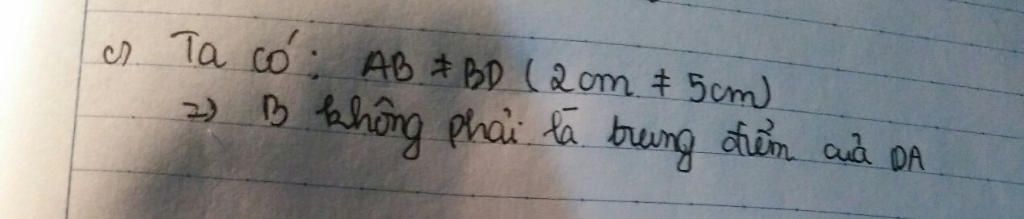 c) Ta có: AB ≠ BD (2cm ≠ 5cm)
=> B không phải là trung điểm của DA